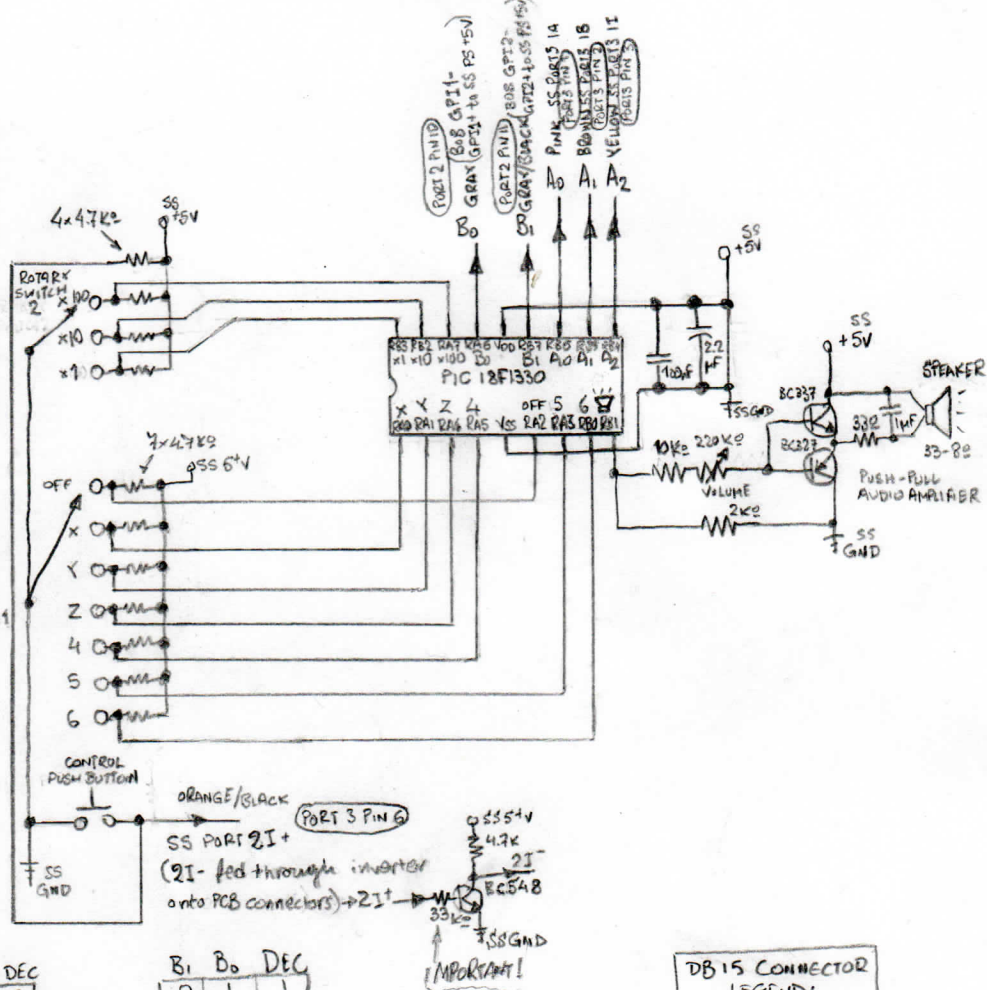 PORT 2 PIN 10
(BOB GPI1-
GRAY (GPI1+ to SS PS +5V)
B0
PORT 2 PIN 11
(BOB GPI2-
GRAY/BLACK GPI2+ to SS PS +5V)
B1
PINK SS PORT3 1A
PORT3 PIN 1
A0
BROWN SS PORT3 1B
PORT3 PIN 2
A1
YELLOW SS PORT3 1I
PORT3 PIN 3
A2
4x4.7KΩ
SS
+5V
ROTARY
SWITCH
2
x100
x10
x1
RB3 RB2 RA7 RA6 VDD RB7 RB6 RB5 RB4
x1 x10 x100 B0 B1 A0 A1 A2
PIC 18F1330
X Y Z 4 OFF 5 6
RA0 RA1 RA4 RA5 VSS RA2 RA3 RB0 RB1
SS
+5V
100µF
2.2
µF
SSGND
SS
+5V
BC337
BC327
33Ω
1µF
SPEAKER
33-8Ω
PUSH-PULL
AUDIO AMPLIFIER
10KΩ
220KΩ
VOLUME
2KΩ
SS
GND
7x4.7KΩ
SS 5+V
OFF
X
Y
Z
4
5
6
1
CONTROL
PUSH BUTTON
ORANGE/BLACK
PORT 3 PIN 6
SS PORT 2I+
(2I- fed through inverter
onto PCB connectors)→2I+
SS
GND
SS5+V
4.7K
2I-
BC548
33KΩ
SSGND
IMPORTANT!
DEC
B1 B0 DEC
0 1 1
DB15 CONNECTOR
LEGEND: